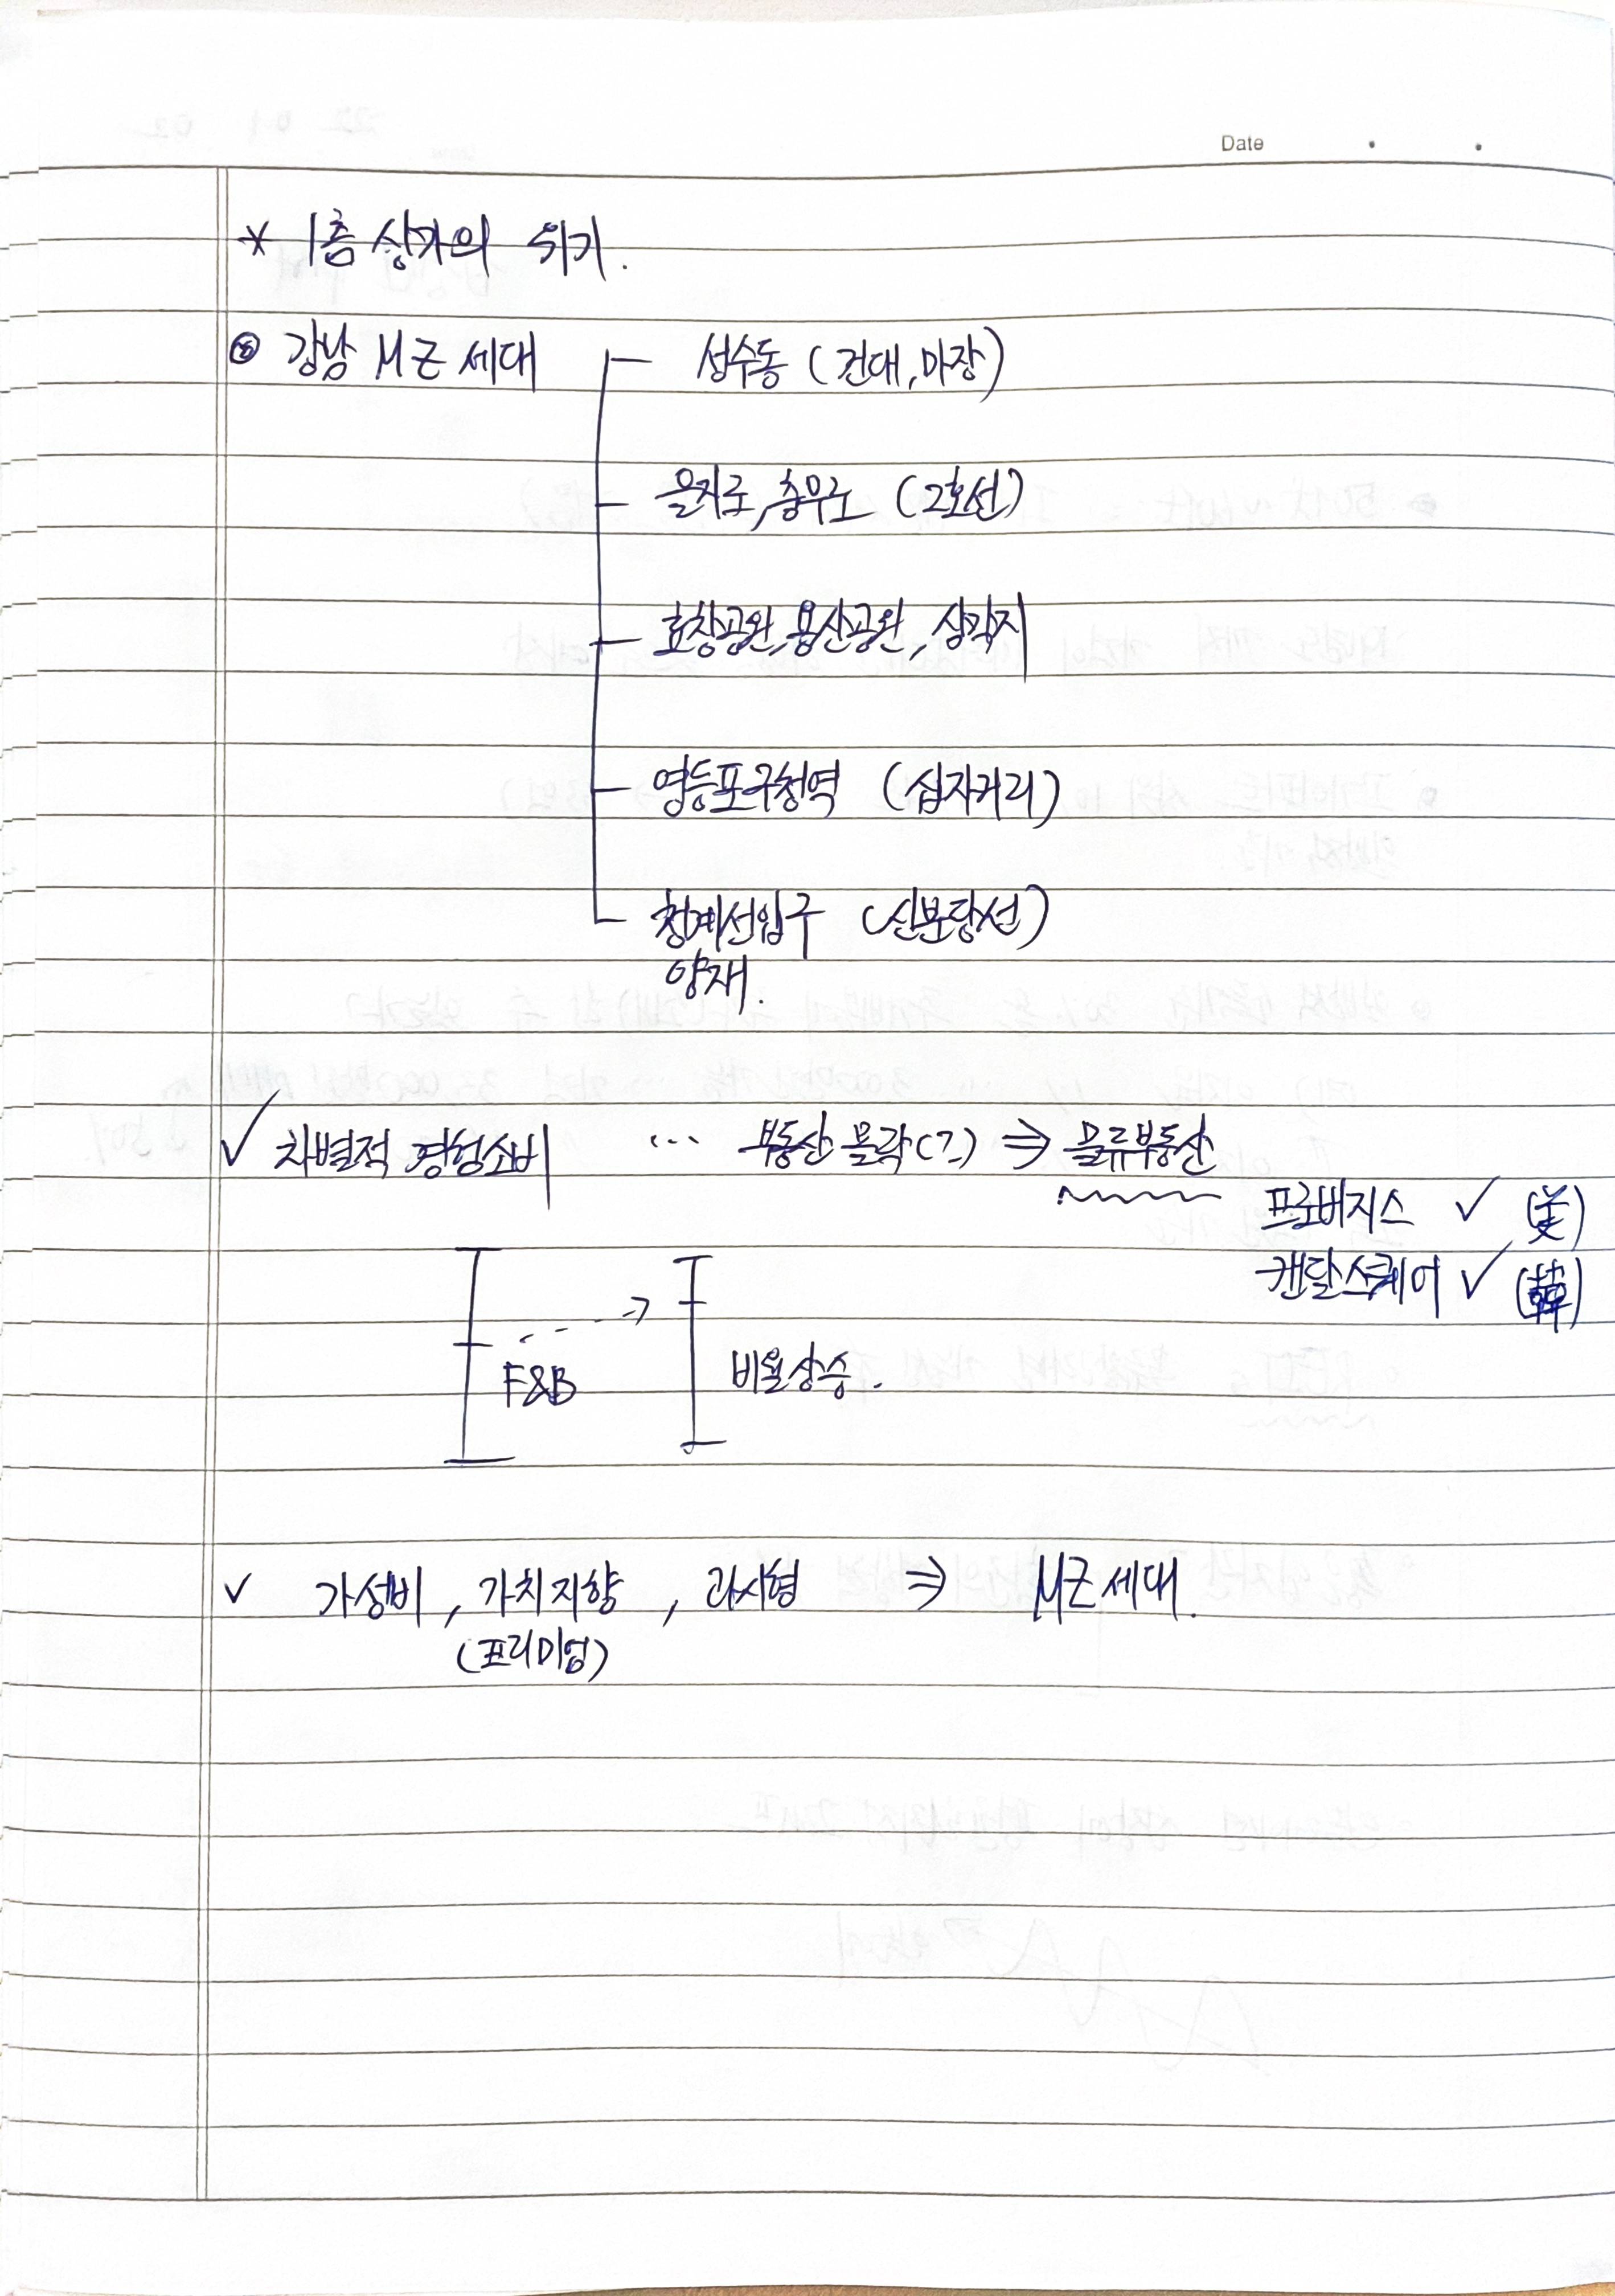 Date . .
* 1층 상가의 위기.
◎ 강남 MZ 세대 성수동 (건대, 마장)
을지로, 충무로 (2호선)
효창공원, 용산공원, 삼각지
영등포구청역 (십자거리)
청계산입구 (신분당선)
양재.
✓ 차별적 경험소비 … 부동산 몰락(?) ⇒ 물류부동산
프로버지스 ✓ (美)
캔달스퀘어 ✓ (韓)
F&B 비율상승.
✓ 가성비, 가치지향, 과시형 ⇒ MZ 세대.
(프리미엄)